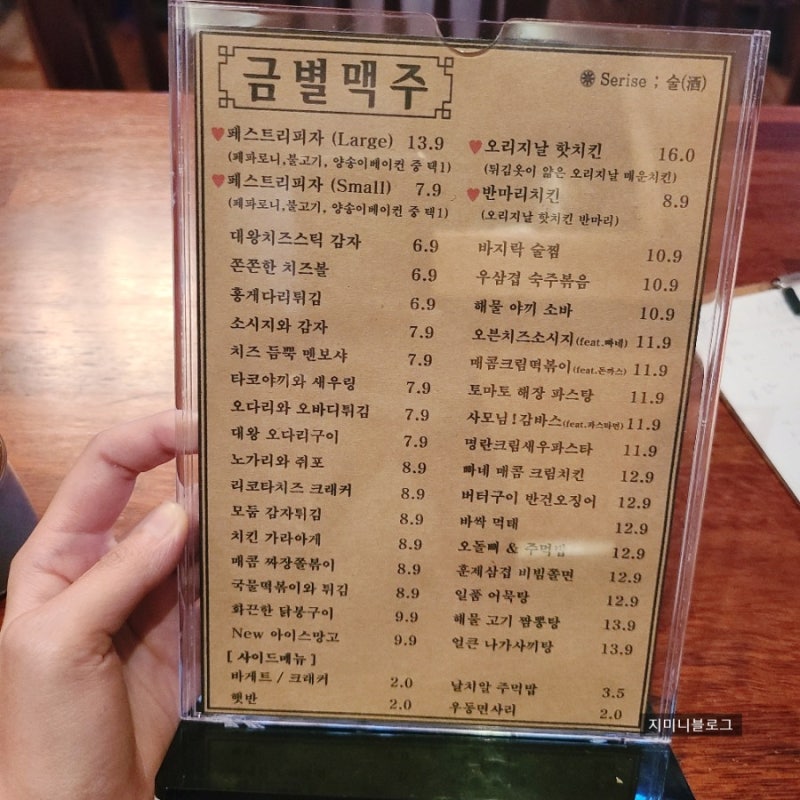 금별맥주
Serise ; 술(酒)
페스트리피자 (Large) 13.9
(페파로니,불고기, 양송이베이컨 중 택1)
페스트리피자 (Small) 7.9
(페파로니,불고기, 양송이베이컨 중 택1)
대왕치즈스틱 감자 6.9
쫀쫀한 치즈볼 6.9
홍게다리튀김 6.9
소시지와 감자 7.9
치즈 듬뿍 멘보샤 7.9
타코야끼와 새우링 7.9
오다리와 오바디튀김 7.9
대왕 오다리구이 7.9
노가리와 쥐포 8.9
리코타치즈 크래커 8.9
모둠 감자튀김 8.9
치킨 가라아게 8.9
매콤 짜장쫄볶이 8.9
국물떡볶이와 튀김 8.9
화끈한 닭봉구이 9.9
New 아이스망고 9.9
[ 사이드메뉴 ]
바게트 / 크래커 2.0
햇반 2.0
오리지날 핫치킨 16.0
(튀김옷이 얇은 오리지날 매운치킨)
반마리치킨 8.9
(오리지날 핫치킨 반마리)
바지락 술찜 10.9
우삼겹 숙주볶음 10.9
해물 야끼 소바 10.9
오븐치즈소시지(feat.빠네) 11.9
매콤크림떡볶이(feat.돈까스) 11.9
토마토 해장 파스탕 11.9
사모님!감바스(feat.파스타면) 11.9
명란크림새우파스타 11.9
빠네 매콤 크림치킨 12.9
버터구이 반건오징어 12.9
바싹 먹태 12.9
오돌뼈 & 주먹밥 12.9
훈제삼겹 비빔쫄면 12.9
일품 어묵탕 12.9
해물 고기 짬뽕탕 13.9
얼큰 나가사끼탕 13.9
날치알 주먹밥 3.5
우동면사리 2.0
지미니블로그